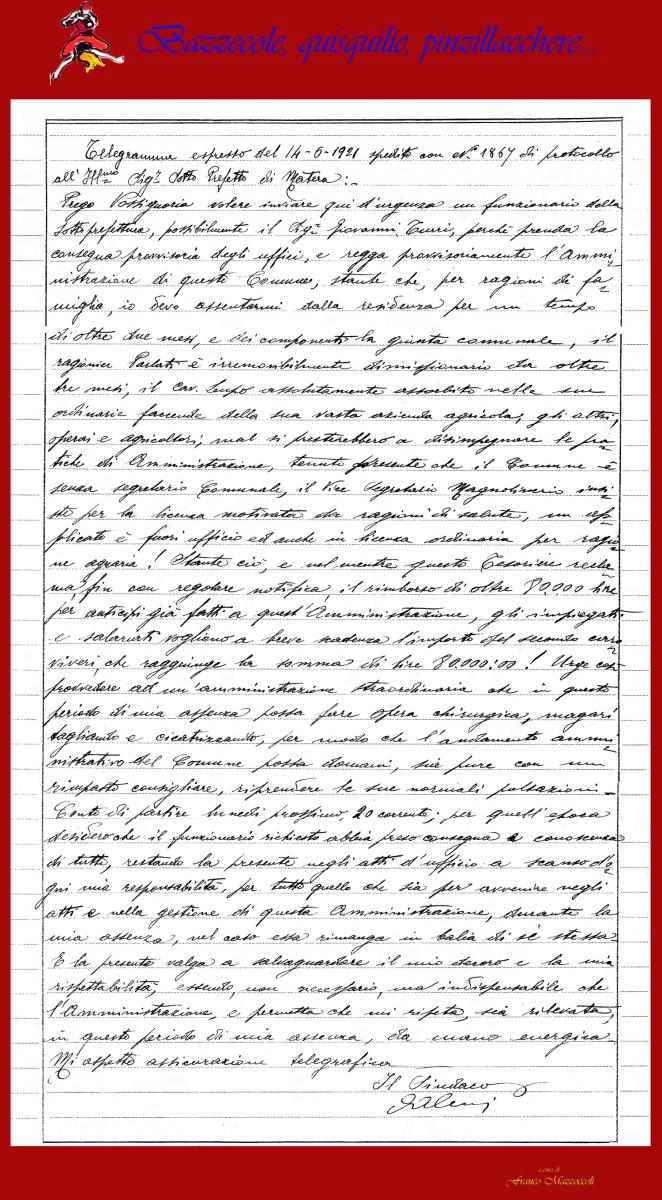 Bazzecole, quisquilie, pinzillacchere...
Telegramma espresso del 14-6-1921 spedito con N.º 1867 di protocollo
all'Ill.mo Sig.r Sotto Prefetto di Matera:-
Prego Vossignoria volere inviare qui d'urgenza un funzionario della
Sottoprefettura, possibilmente il Sig.r Giovanni Turri, perché prenda la
consegna provvisoria degli uffici, e regga provvisoriamente l'Ammi=
nistrazione di questo Comune, stante che, per ragioni di fa=
miglia, io devo assentarmi dalla residenza per un tempo
di oltre due mesi, e dei componenti la giunta comunale, il
ragionier Parlati è irremovibilmente dimissionario da oltre
tre mesi, il cav. Lupo assolutamente assorbito nelle sue
ordinarie faccende della sua vasta azienda agricola; gli altri,
operai e agricoltori, mal si presterebbero a disimpegnare le pra=
tiche di Amministrazione, tenuto presente che il Comune è
senza segretario Comunale, il Vice Segretario insi=
ste per la licenza motivata da ragioni di salute, un ap=
plicato è fuori ufficio ed anche in licenza ordinaria per ragio=
ne agraria! Stante ciò, e nel mentre questo Tesoriere recla=
ma, fin con regolare notifica, il rimborso di oltre 80,000 lire
per anticipi già fatti a quest'Amministrazione, gli impiegati
e salariati vogliono a breve scadenza l'importo del secondo caro
viveri, che raggiunge la somma di lire 80.000:00! Urge così
provvedere ad un'amministrazione straordinaria che in questo
periodo di mia assenza possa fare opera chirurgica, magari
tagliando e cicatrizzando, per modo che l'andamento ammi=
nistrativo del Comune possa domani, sia pure con un
rimpasto consigliare, riprendere le sue normali pulsazioni.-
Conto di partire lunedì prossimo, 20 corrente; per quell'epoca
desidero che il funzionario richiesto abbia preso consegna e conoscenza
di tutto, restando la presente negli atti d'ufficio a scanso d'o=
gni mia responsabilità, per tutto quello che sia per avvenire negli
atti e nella gestione di questa Amministrazione, durante la
mia assenza, nel caso essa rimanga in balia di sè stessa.
E la presente valga a salvaguardare il mio decoro e la mia
rispettabilità, essendo, non necessario, ma indispensabile che
l'Amministrazione, e permetta che mi ripeta, sia rilevata,
in questo periodo di mia assenza, da mano energica.
Mi aspetto assicurazione telegrafica
Il Sindaco
a cura di
Franco Mazzoccoli